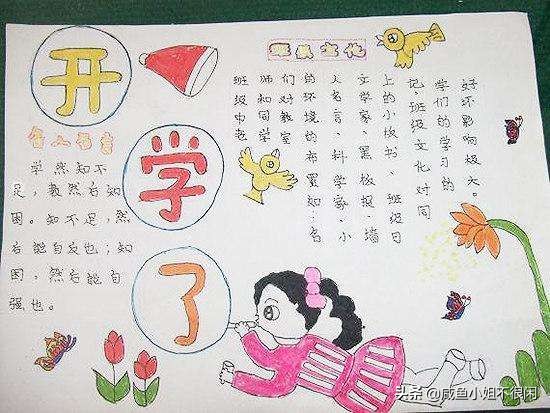 开
学
了
名人名言
学然知不
足，教然后知
困。知不足，然
后能自反也；知
困，然后能自
强也。
班级文化
班级中老
师和同学
们对教室
的环境的布置如：名
人名言、科学家、小
文学家、黑板报、墙
上的小板书、班级日
记、班级文化对同
学们的学习的
好坏影响极大。
头条 @咸鱼小姐不很闲